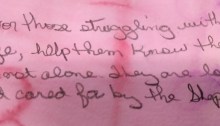 or those struggling with
e, help them know th
not alone they are lo
d cared for by the